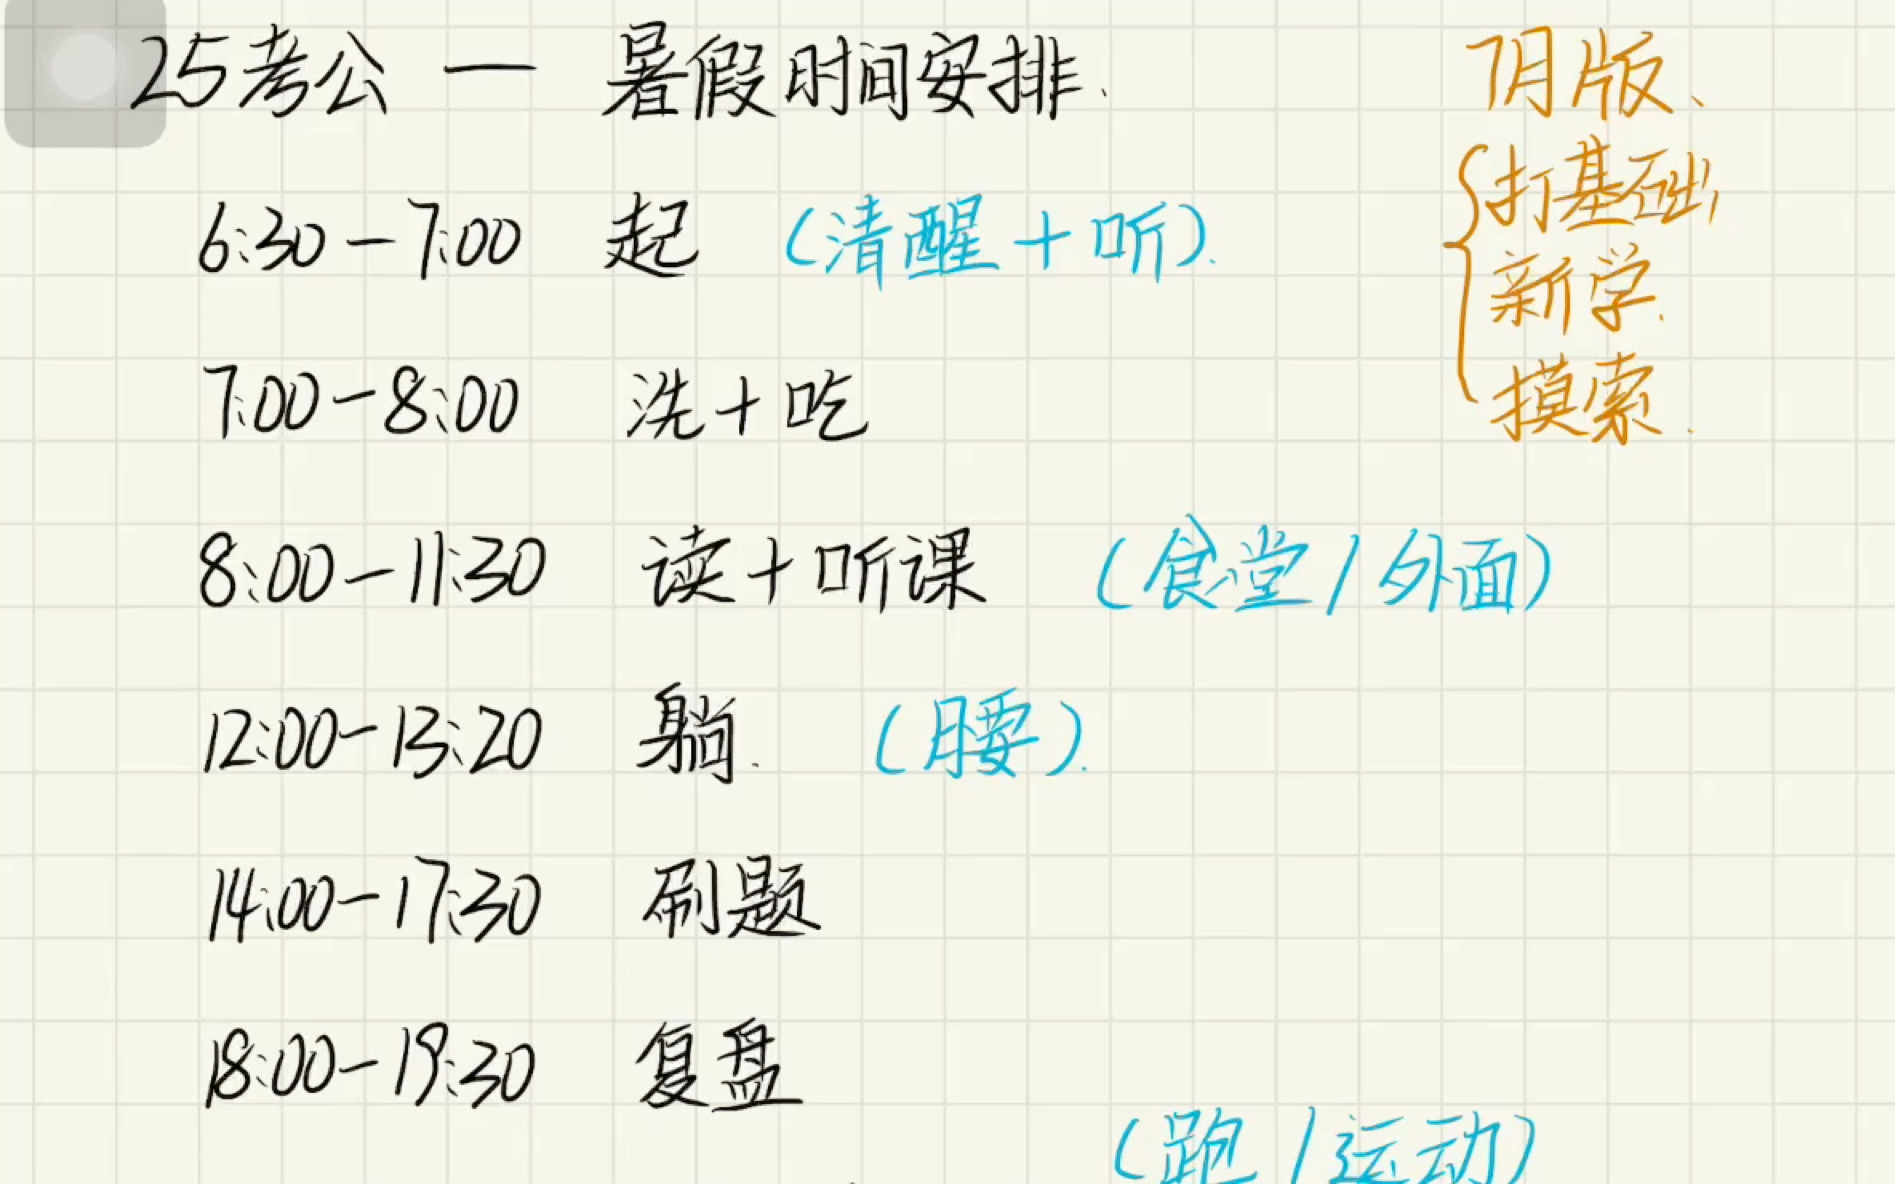 25考公 — 暑假时间安排.
7月版、
打基础,
新学.
摸索.
6:30-7:00 起 (清醒+听).
7:00-8:00 洗+吃
8:00-11:30 读+听课 (食堂/外面)
12:00-13:20 躺. (腰).
14:00-17:30 刷题
18:00-19:30 复盘
(跑/运动)